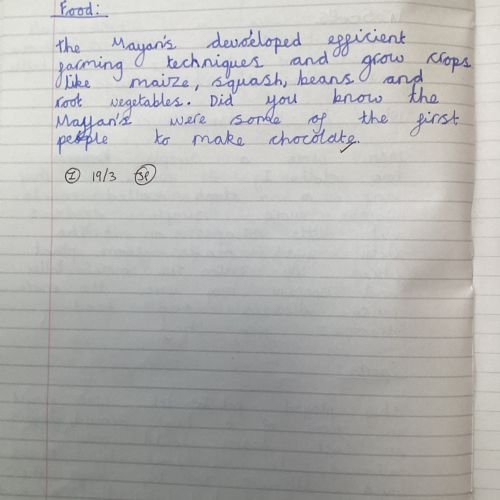 Food:
The Mayan's devoeloped efficient
farming techniques and grow crops
like maize, squash, beans and
root vegetables. Did you know the
Mayan's were some of the first
people to make chocolate.
I 19/3 Sp